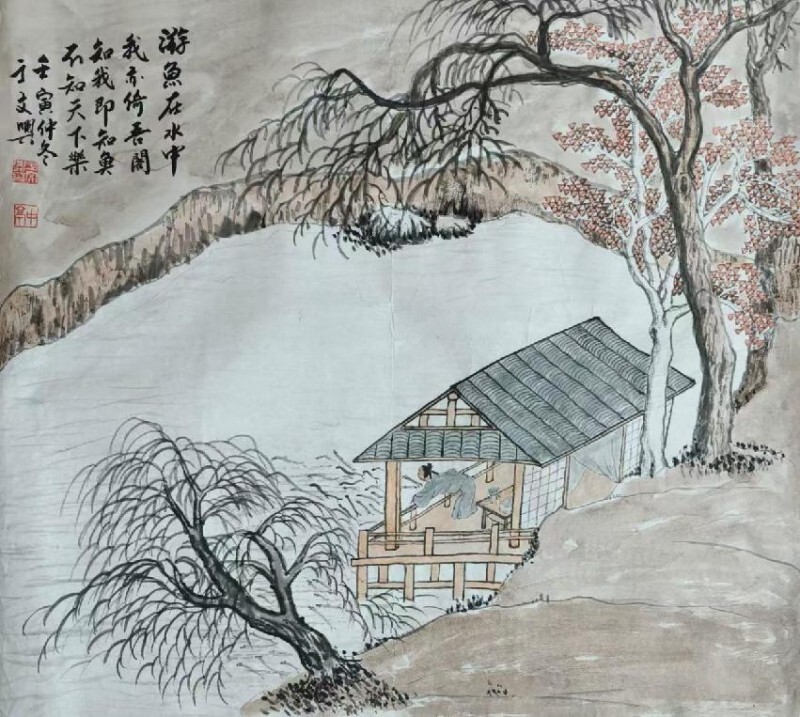 游魚在水中
我亦倚吾閣
知我即知魚
不知天下樂
壬寅仲冬
于文興